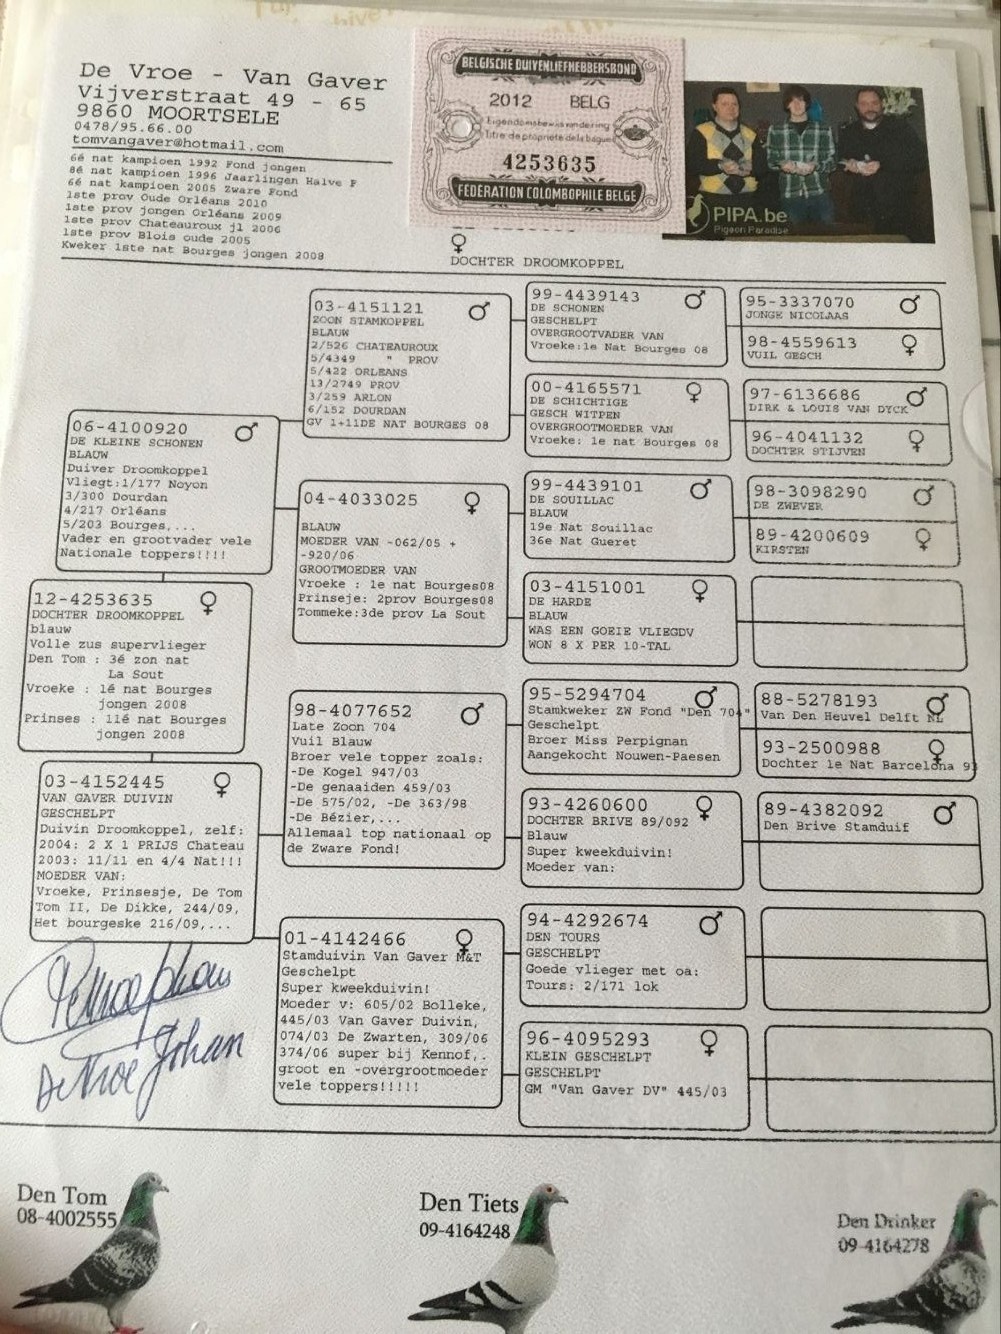 De Vroe - Van Gaver
Vijverstraat 49 - 65
9860 MOORTSELE
0478/95.66.00
tomvangaver@hotmail.com
6é nat kampioen 1992 Fond jongen
8é nat kampioen 1996 Jaarlingen Halve F
6é nat kampioen 2005 Zware Fond
1ste prov Oude Orléans 2010
1ste prov jongen Orléans 2009
1ste prov Chateauroux jl 2006
1ste prov Blois oude 2005
Kweker 1ste nat Bourges jongen 2008
BELGISCHE DUIVENLIEFHEBBERSBOND
2012 BELG
Eigendomsbewijs van de ring
Titre de propriété de la bague
4253635
FEDERATION COLOMBOPHILE BELGE
PIPA.be
Pigeon Paradise
♀
DOCHTER DROOMKOPPEL
12-4253635 ♀
DOCHTER DROOMKOPPEL
blauw
Volle zus supervlieger
Den Tom : 3é zon nat
La Sout
Vroeke : 1é nat Bourges
jongen 2008
Prinses : 11é nat Bourges
jongen 2008
06-4100920 ♂
DE KLEINE SCHONEN
BLAUW
Duiver Droomkoppel
Vliegt:1/177 Noyon
3/300 Dourdan
4/217 Orléans
5/203 Bourges,...
Vader en grootvader vele
Nationale toppers!!!!
03-4152445 ♀
VAN GAVER DUIVIN
GESCHELPT
Duivin Droomkoppel, zelf:
2004: 2 X 1 PRIJS Chateau
2003: 11/11 en 4/4 Nat!!!
MOEDER VAN:
Vroeke, Prinsesje, De Tom
Tom II, De Dikke, 244/09,
Het bourgeske 216/09,...
03-4151121 ♂
ZOON STAMKOPPEL
BLAUW
2/526 CHATEAUROUX
5/4349 " PROV
5/422 ORLEANS
13/2749 PROV
3/259 ARLON
6/152 DOURDAN
GV 1+11DE NAT BOURGES 08
04-4033025 ♀
BLAUW
MOEDER VAN -062/05 +
-920/06
GROOTMOEDER VAN
Vroeke : 1e nat Bourges08
Prinseje: 2prov Bourges08
Tommeke:3de prov La Sout
98-4077652 ♂
Late Zoon 704
Vuil Blauw
Broer vele topper zoals:
-De Kogel 947/03
-De genaaiden 459/03
-De 575/02, -De 363/98
-De Bézier,...
Allemaal top nationaal op
de Zware Fond!
01-4142466 ♀
Stamduivin Van Gaver M&T
Geschelpt
Super kweekduivin!
Moeder v: 605/02 Bolleke,
445/03 Van Gaver Duivin,
074/03 De Zwarten, 309/06
374/06 super bij Kennof,.
groot en -overgrootmoeder
vele toppers!!!!!
99-4439143 ♂
DE SCHONEN
GESCHELPT
OVERGROOTVADER VAN
Vroeke:1e Nat Bourges 08
00-4165571 ♀
DE SCHICHTIGE
GESCH WITPEN
OVERGROOTMOEDER VAN
Vroeke: 1e nat Bourges 08
99-4439101 ♂
DE SOUILLAC
BLAUW
19e Nat Souillac
36e Nat Gueret
03-4151001 ♀
DE HARDE
BLAUW
WAS EEN GOEIE VLIEGDV
WON 8 X PER 10-TAL
95-5294704 ♂
Stamkweker ZW Fond "Den 704"
Geschelpt
Broer Miss Perpignan
Aangekocht Nouwen-Paesen
93-4260600 ♀
DOCHTER BRIVE 89/092
Blauw
Super kweekduivin!
Moeder van:
94-4292674 ♂
DEN TOURS
GESCHELPT
Goede vlieger met oa:
Tours: 2/171 lok
96-4095293 ♀
KLEIN GESCHELPT
GESCHELPT
GM "Van Gaver DV" 445/03
95-3337070 ♂
JONGE NICOLAAS
98-4559613 ♀
VUIL GESCH
97-6136686 ♂
DIRK & LOUIS VAN DYCK
96-4041132 ♀
DOCHTER STIJVEN
98-3098290 ♂
DE ZWEVER
89-4200609 ♀
KIRSTEN
88-5278193 ♂
Van Den Heuvel Delft NL
93-2500988 ♀
Dochter 1e Nat Barcelona 93
89-4382092 ♂
Den Brive Stamduif
De Vroe Johan
Den Tom
08-4002555
Den Tiets
09-4164248
Den Drinker
09-4164278